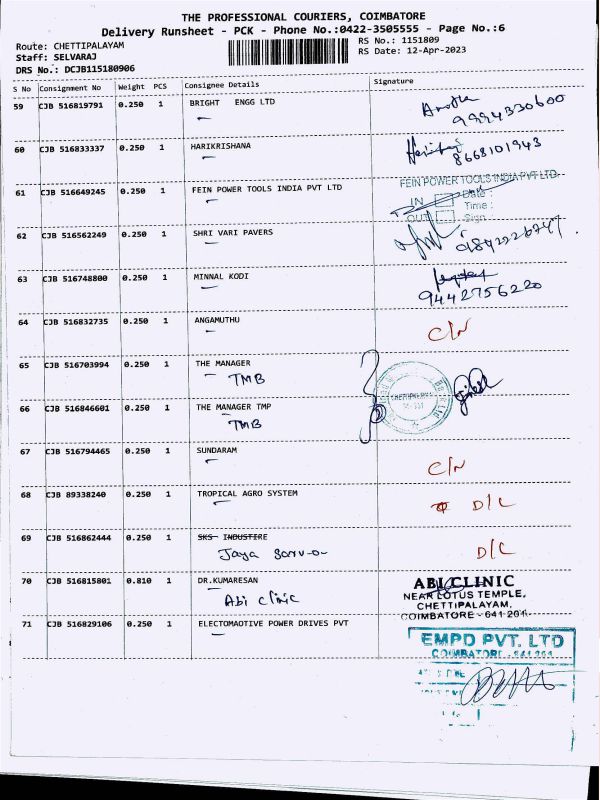 THE PROFESSIONAL COURIERS, COIMBATORE
Delivery Runsheet - PCK - Phone No.:0422-3505555 - Page No.:6
Route: CHETTIPALAYAM RS No.: 1151809
Staff: SELVARAJ RS Date: 12-Apr-2023
DRS No.: DCJB115180906
S No Consignment No Weight PCS Consignee Details Signature
59 CJB 516819791 0.250 1 BRIGHT ENGG LTD
9994330600
60 CJB 516833337 0.250 1 HARIKRISHANA
8668101943
61 CJB 516649245 0.250 1 FEIN POWER TOOLS INDIA PVT LTD FEIN POWER TOOLS INDIA PVT LTD.
IN Date :
Time :
OUT Sign
62 CJB 516562249 0.250 1 SHRI VARI PAVERS
63 CJB 516748800 0.250 1 MINNAL KODI
9442756220
64 CJB 516832735 0.250 1 ANGAMUTHU C/N
65 CJB 516703994 0.250 1 THE MANAGER
TMB
CHETTIPALAYAM
66 CJB 516846601 0.250 1 THE MANAGER TMP
TMB
67 CJB 516794465 0.250 1 SUNDARAM C/N
68 CJB 89338240 0.250 1 TROPICAL AGRO SYSTEM D/L
69 CJB 516862444 0.250 1 SKS- INDUSTIRE D/L
Jaya
70 CJB 516815801 0.810 1 DR.KUMARESAN ABI CLINIC
Abi Clinic NEAR LOTUS TEMPLE,
CHETTIPALAYAM,
COIMBATORE - 641 201.
71 CJB 516829106 0.250 1 ELECTOMAOTIVE POWER DRIVES PVT EMPD PVT. LTD
COIMBATORE - 641 201.